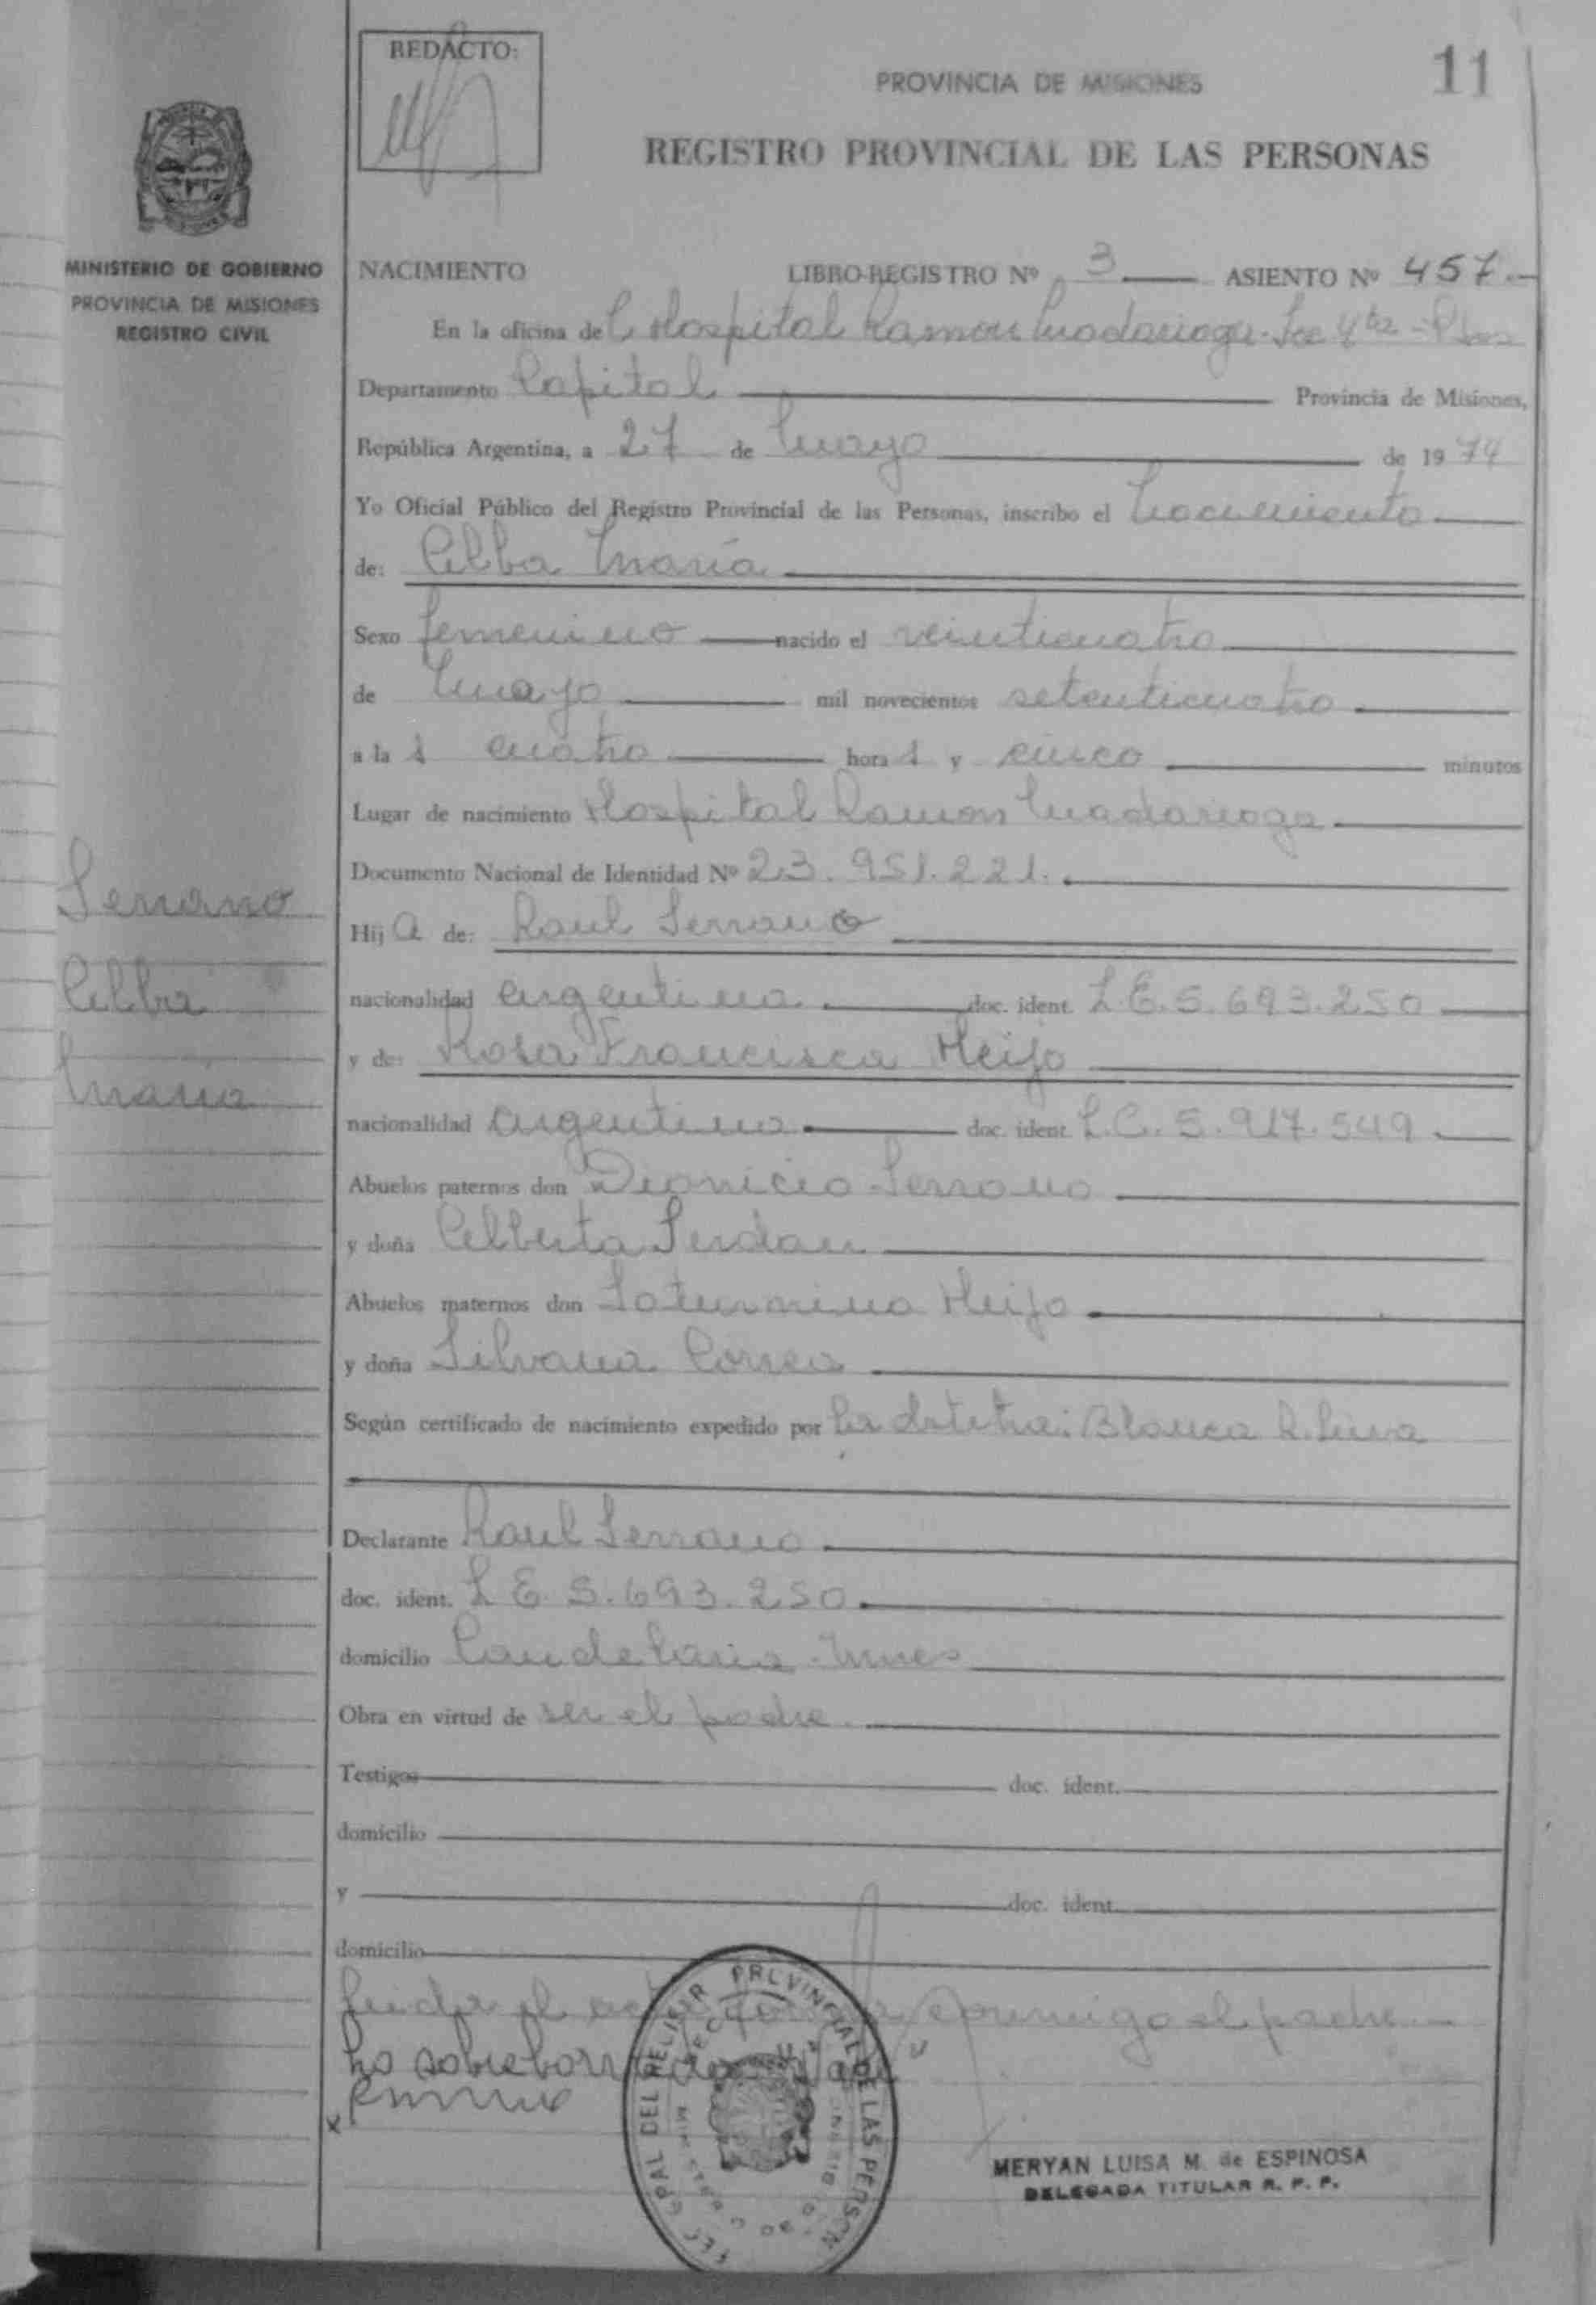 REDACTO:
PROVINCIA DE MISIONES
11
REGISTRO PROVINCIAL DE LAS PERSONAS
MINISTERIO DE GOBIERNO
PROVINCIA DE MISIONES
REGISTRO CIVIL
NACIMIENTO LIBRO-REGISTRO Nº 3 ASIENTO Nº 457.-
En la oficina del Hospital Ramon Madariaga - Sec 4ta - Pdas
Departamento Capital Provincia de Misiones,
República Argentina, a 27 de Mayo de 1974
Yo Oficial Público del Registro Provincial de las Personas, inscribo el Nacimiento
de: Alba María
Sexo femenino nacido el veinticuatro
de Mayo mil novecientos setenticuatro
a las cuatro horas y cinco minutos
Lugar de nacimiento Hospital Ramon Madariaga
Documento Nacional de Identidad Nº 23.951.221.
Serrano
Alba
María
Hija de: Raul Serrano
nacionalidad argentina doc. ident. L.E. 5.693.250
y de: Rosa Francisca Meijo
nacionalidad argentina doc. ident. L.C. 5.917.549
Abuelos paternos don Dionicio Serrano
y doña Alberta
Abuelos maternos don Saturnino Meijo
y doña Silvana Correa
Según certificado de nacimiento expedido por la obstetra: Blanca R.
Declarante Raul Serrano
doc. ident. L E. 5.693.250
domicilio Candelaria - Mnes
Obra en virtud de ser el padre.
Testigos doc. ident.
domicilio
y doc. ident.
domicilio
el acta conmigo el padre
MERYAN LUISA M. de ESPINOSA
DELEGADA TITULAR R. P. P.